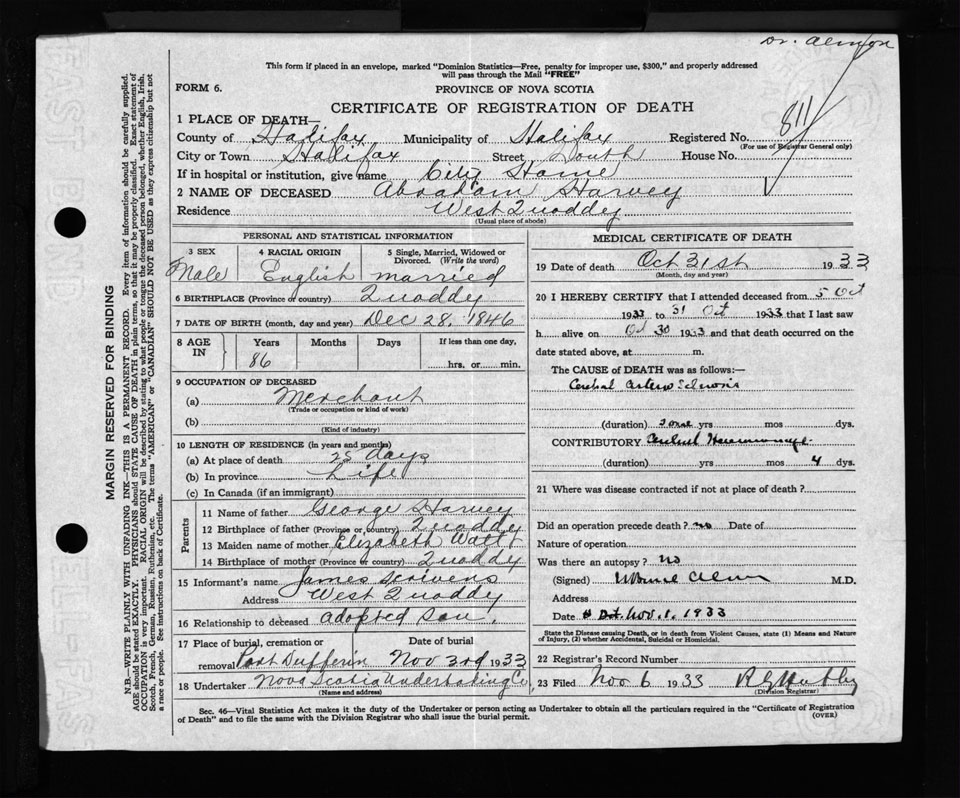 Dr. Almon
This form if placed in an envelope, marked "Dominion Statistics—Free, penalty for improper use, $300," and properly addressed
will pass through the Mail "FREE"
FORM 6.
PROVINCE OF NOVA SCOTIA
CERTIFICATE OF REGISTRATION OF DEATH
811
1 PLACE OF DEATH—
County of Halifax Municipality of Halifax Registered No.
(For use of Registrar General only)
City or Town Halifax Street South House No.
If in hospital or institution, give name City Home
2 NAME OF DECEASED Abraham Harvey
Residence West Quoddy
(Usual place of abode)
PERSONAL AND STATISTICAL INFORMATION
3 SEX 4 RACIAL ORIGIN 5 Single, Married, Widowed or
Divorced. (Write the word)
Male English married
6 BIRTHPLACE (Province or country) Quoddy
7 DATE OF BIRTH (month, day and year) Dec 28, 1846
8 AGE IN Years Months Days If less than one day,
86 hrs. or min.
9 OCCUPATION OF DECEASED
(a) Merchant
(Trade or occupation or kind of work)
(b)
(Kind of industry)
10 LENGTH OF RESIDENCE (in years and months)
(a) At place of death 25 days
(b) In province Life
(c) In Canada (if an immigrant)
Parents
11 Name of father George Harvey
12 Birthplace of father (Province or country) Quoddy
13 Maiden name of mother Elizabeth Watt
14 Birthplace of mother (Province or country) Quoddy
15 Informant's name James Scrivens
Address West Quoddy
16 Relationship to deceased adopted son
17 Place of burial, cremation or Date of burial
removal Port Dufferin Nov 3rd 1933
18 Undertaker Nova Scotia Undertaking Co,
(Name and address)
MEDICAL CERTIFICATE OF DEATH
19 Date of death Oct 31st 1933
(Month, day and year)
20 I HEREBY CERTIFY that I attended deceased from 5 Oct
1933 to 31 Oct 1933 that I last saw
h alive on Oct 30 1933 and that death occurred on the
date stated above, at m.
The CAUSE of DEATH was as follows:—
Cerebral Arterio Sclerosis
(duration) yrs mos dys.
CONTRIBUTORY Cerebral Haemorrhage
(duration) yrs mos 4 dys.
21 Where was disease contracted if not at place of death?
Did an operation precede death? no Date of
Nature of operation
Was there an autopsy? no
(Signed) Almon M.D.
Address
Date Nov. 1. 1933
State the Disease causing Death, or in death from Violent Causes, state (1) Means and Nature
of Injury, (2) whether Accidental, Suicidal or Homicidal.
22 Registrar's Record Number
23 Filed Nov 6 1933
(Division Registrar)
Sec. 46—Vital Statistics Act makes it the duty of the Undertaker or person acting as Undertaker to obtain all the particulars required in the "Certificate of Registration
of Death" and to file the same with the Division Registrar who shall issue the burial permit.
(OVER)
MARGIN RESERVED FOR BINDING
N.B.—WRITE PLAINLY WITH UNFADING INK—THIS IS A PERMANENT RECORD. Every item of information should be carefully supplied.
AGE should be stated EXACTLY. PHYSICIANS should STATE CAUSE OF DEATH in plain terms, so that it may be properly classified. Exact statement of
OCCUPATION is very important. RACIAL ORIGIN will be described by stating to what people or tongue the deceased person belonged, whether English, Irish,
Scotch, French, German, Russian, Ruthenian, etc. The terms "AMERICAN" or "CANADIAN" SHOULD NOT BE USED as they express citizenship but not
a race or people. See instructions on back of Certificate.